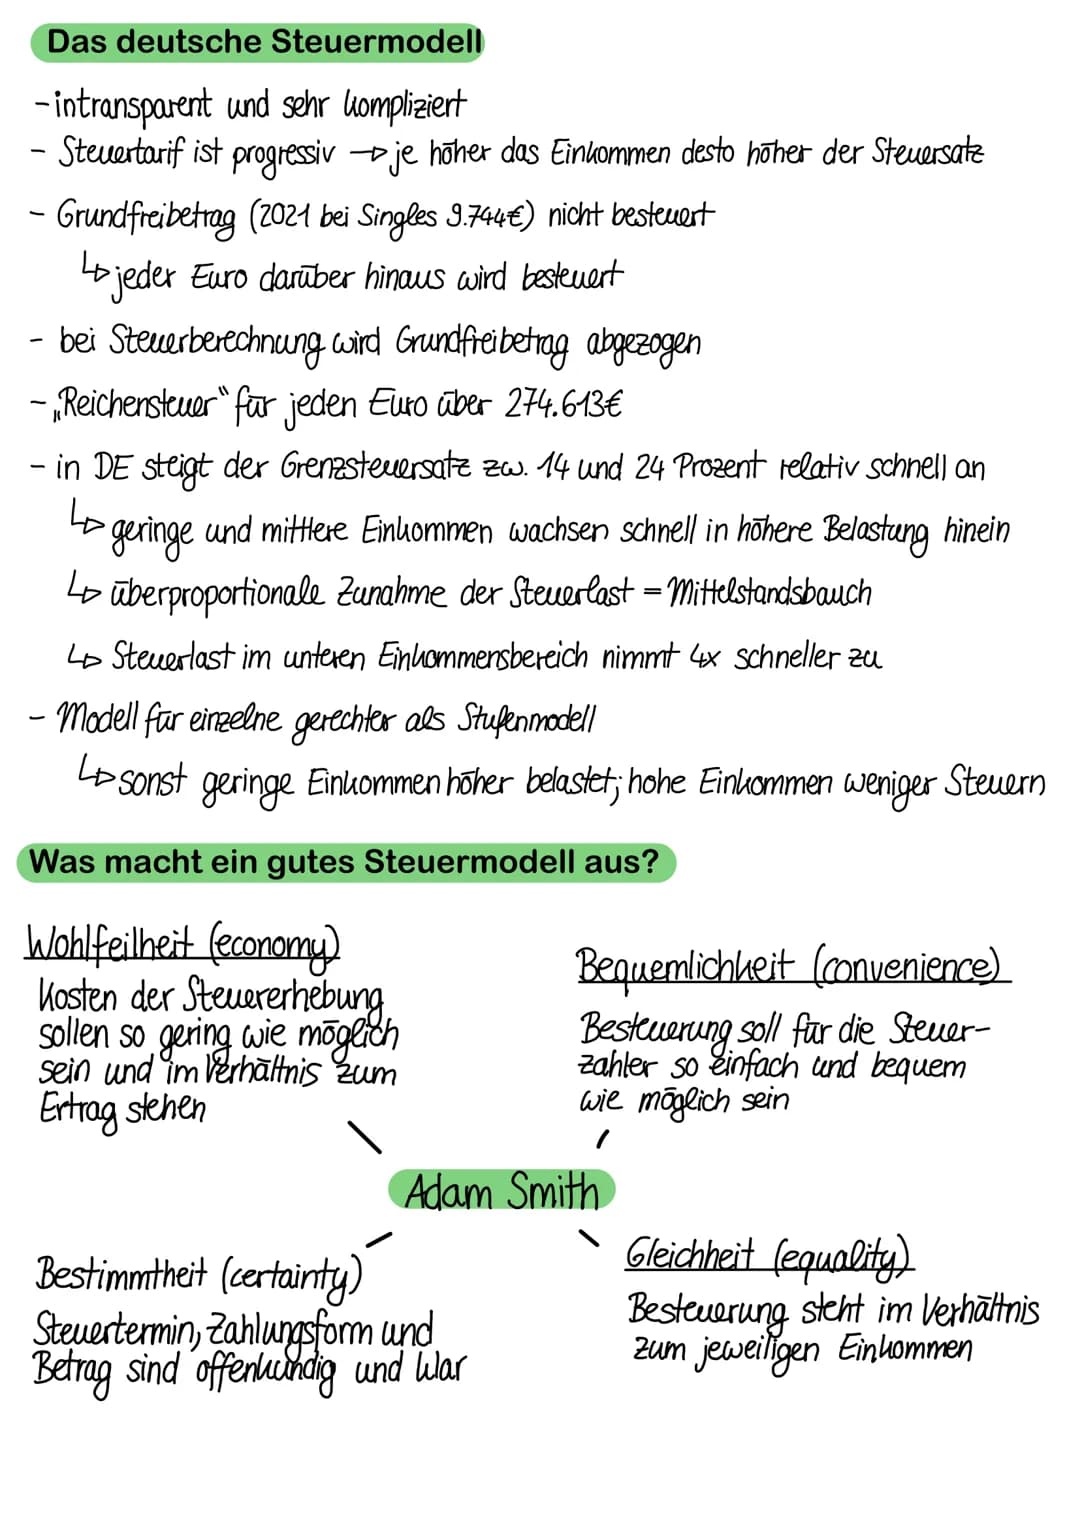 Das deutsche Steuermodell
- intransparent und sehr kompliziert
- Steuertarif ist progressiv → je höher das Einkommen desto höher der Steuersatz
- Grundfreibetrag (2021 bei Singles 9.744€) nicht besteuert
↳ jeder Euro darüber hinaus wird besteuert
- bei Steuerberechnung wird Grundfreibetrag abgezogen
- „Reichensteuer“ für jeden Euro über 274.613€
- in DE steigt der Grenzsteuersatz zw. 14 und 24 Prozent relativ schnell an
↳ geringe und mittlere Einkommen wachsen schnell in höhere Belastung hinein
↳ überproportionale Zunahme der Steuerlast = Mittelstandsbauch
↳ Steuerlast im unteren Einkommensbereich nimmt 4x schneller zu
- Modell für einzelne gerechter als Stufenmodell
↳ sonst geringe Einkommen höher belastet; hohe Einkommen weniger Steuern
Was macht ein gutes Steuermodell aus?
Wohlfeilheit (economy)
Kosten der Steuererhebung
sollen so gering wie möglich
sein und im Verhältnis zum
Ertrag stehen
Bequemlichkeit (convenience)
Besteuerung soll für die Steuer-
zahler so einfach und bequem
wie möglich sein
Adam Smith
Bestimmtheit (certainty)
Steuertermin, Zahlungsform und
Betrag sind offenkundig und klar
Gleichheit (equality)
Besteuerung steht im Verhältnis
zum jeweiligen Einkommen